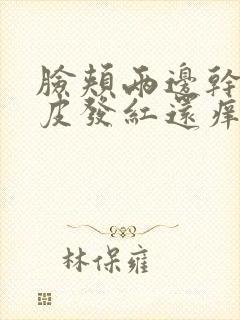 臉頰兩邊幹
皮發紅還痒
林保雍